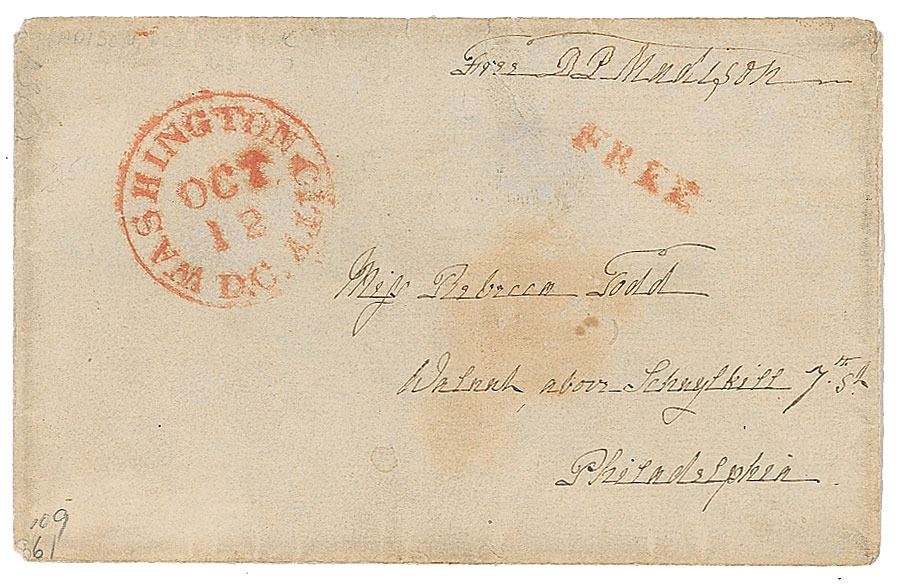 Free D P Madison
FREE
WASHINGTON CITY
OCT
12
D.C.
Miss Rebecca Todd
Walnut above Schuylkill 7.th St
Philadelphia
109
61